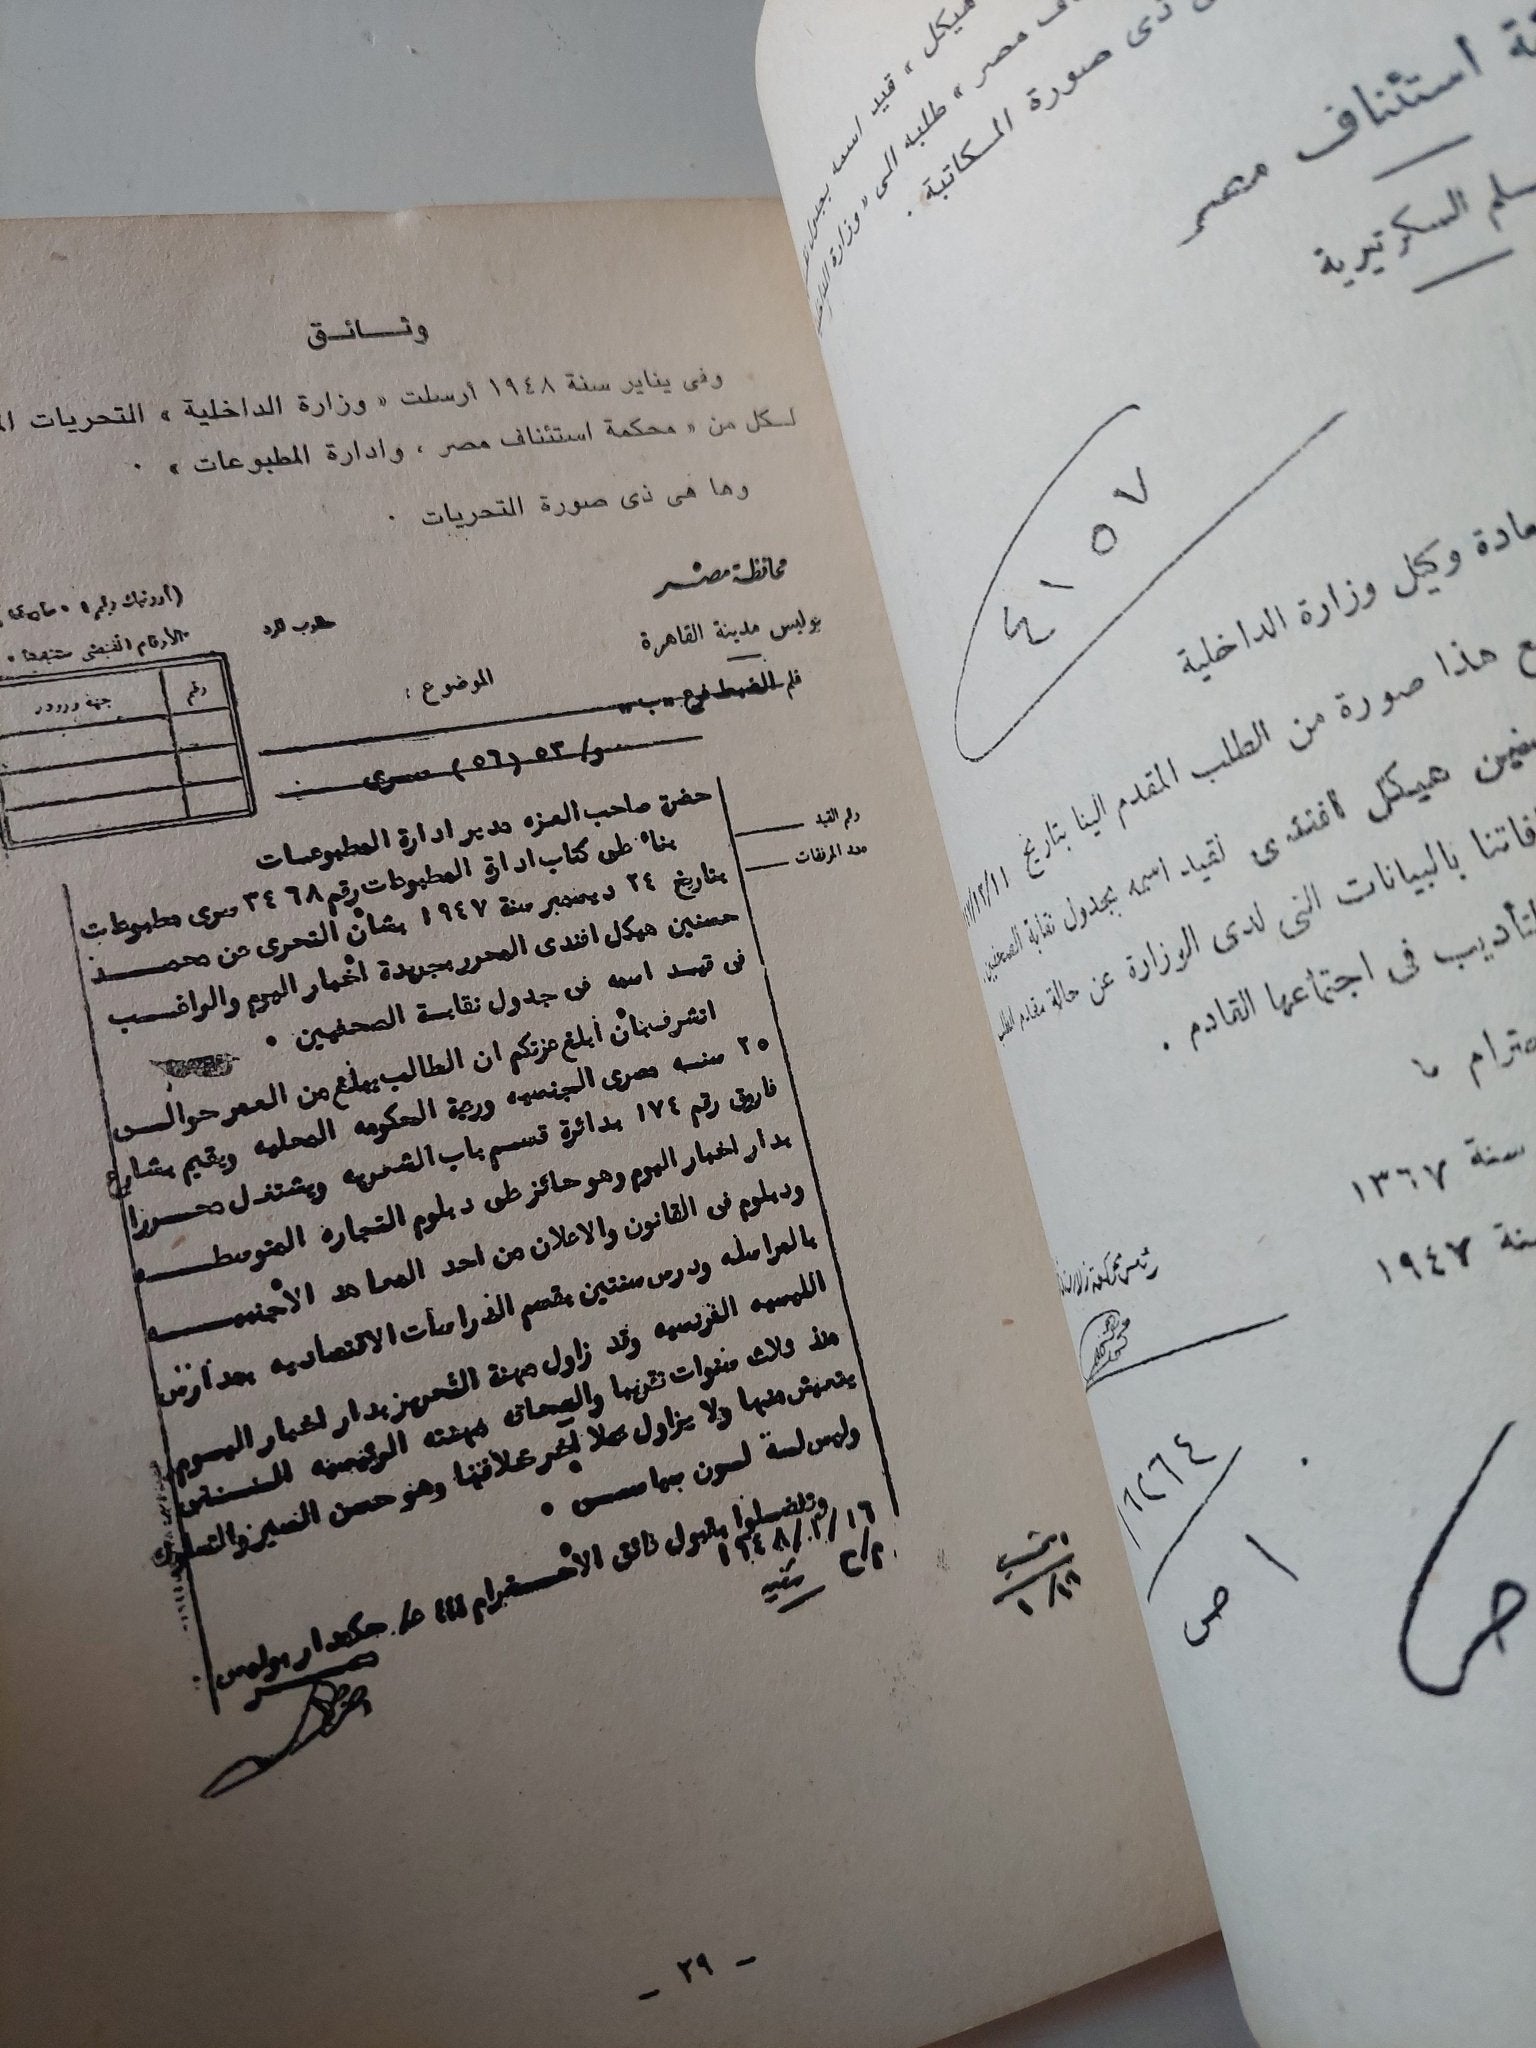 وثائق
وفى يناير سنة ١٩٤٨ أرسلت « وزارة الداخلية » التحريات
لكل من « محكمة استئناف مصر ، وادارة المطبوعات » ٠
وها هى ذى صورة التحريات ٠
محافظة مصر
بوليس مدينة القاهرة
قلم الضبط فرع «ب»
الموضوع :
رقم
جهة ورود
و/ ٥٣ (٥٦) سرى
رقم القيد
عدد المرفقات
حضرة صاحب العزه مدير ادارة المطبوعات
بناء على كتاب ادارة المطبوعات رقم ٣٤٦٨ سرى مطبوعات
بتاريخ ٢٤ ديسمبر سنة ١٩٤٧ بشأن التحرى عن محمد
حسنين هيكل افندى المحرر بجريدة أخبار اليوم والراغب
فى قيد اسمه فى جدول نقابة الصحفيين ٠
اتشرف بأن أبلغ عزتكم ان الطالب يبلغ من العمر حوالى
٢٥ سنه مصرى الجنسيه ورعية الحكومه المحليه ويقيم بشارع
فاروق رقم ١٧٤ بدائرة قسم باب الشعريه ويشتغل محررا
بدار اخبار اليوم وهو حائز على دبلوم التجاره المتوسطه
ودبلوم فى القانون والاعلان من احد المعاهد الأجنبيه
بالمراسله ودرس سنتين بقسم الدراسات الاقتصاديه بمدارس
الليسيه الفرنسيه وقد زاول مهنة التحرير بدار اخبار اليوم
منذ ثلاث سنوات تقريبا والصحافه مهنته الرئيسيه التى
يتعيش منها ولا يزاول عملا آخر علاقتها وهو حسن السير والسلوك
وليس لسه لون سياسى ٠
وتفضلوا بقبول فائق الأحترام
حكمدار بوليس
مصر
١٩٤٨/ ١/ ١٦
م/ح
١/١٦
— ٢٩ —
هيكل » قيد اسمه بجدول
مصر » طلبه الى « وزارة الداخلية
ذى صورة المكاتبة ٠
استئناف مصر
السكرتيرية
٤١٥٧
وكيل وزارة الداخلية
هذا صورة من الطلب المقدم الينا بتاريخ
هيكل افندى لقيد اسمه بجدول نقابة الصحفيين
بالبيانات التى لدى الوزارة عن حالة مقدم الطلب
التأديب فى اجتماعها القادم ٠
سنة ١٣٦٧
سنة ١٩٤٧